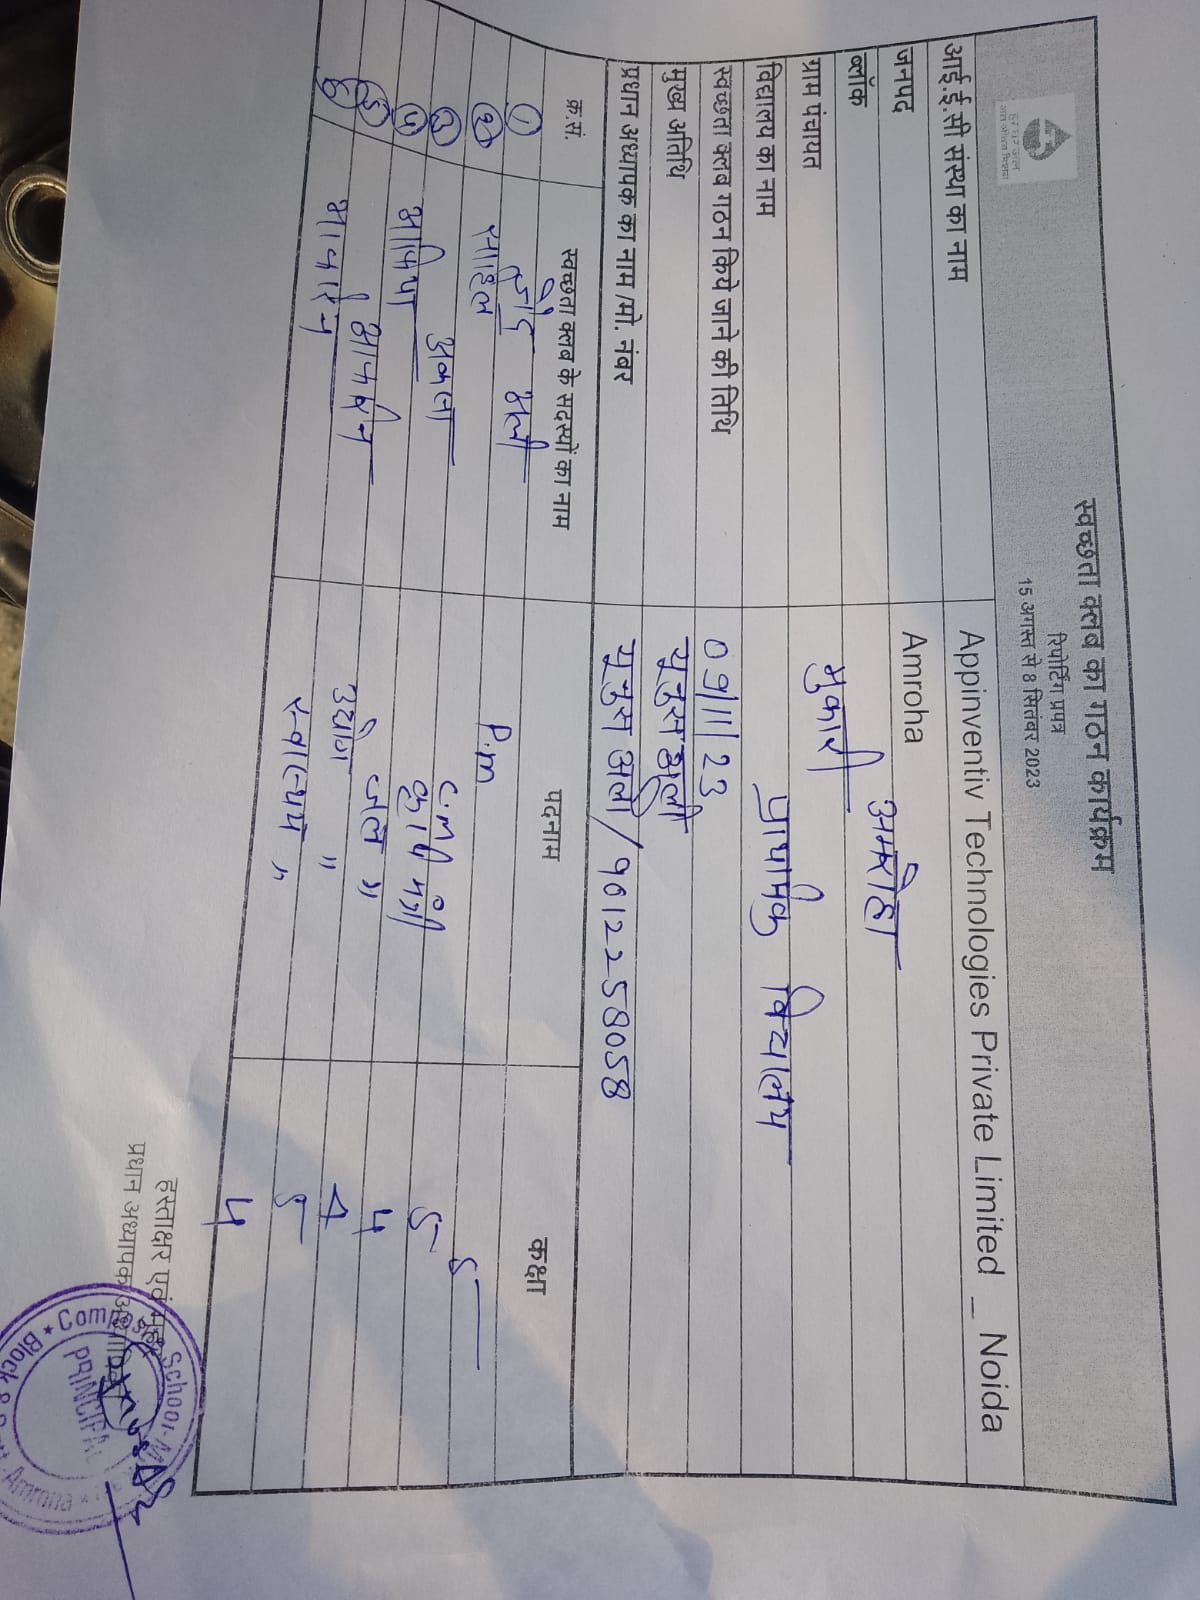 हर घर जल
जल जीवन मिशन
स्वच्छता क्लब का गठन कार्यक्रम
रिपोर्टिंग प्रपत्र
15 अगस्त से 8 सितंबर 2023
आई.ई.सी संस्था का नाम Appinventiv Technologies Private Limited _ Noida
जनपद Amroha
ब्लॉक अमरोहा
ग्राम पंचायत मुकारी
विद्यालय का नाम प्राथमिक विद्यालय
स्वच्छता क्लब गठन किये जाने की तिथि 09/11/23
मुख्य अतिथि यूनुस अली
प्रधान अध्यापक का नाम /मो. नंबर यूनुस अली / 9012258058
क्र.सं. स्वच्छता क्लब के सदस्यों का नाम पदनाम कक्षा
1 अली P.m 5
2 साहिल C.M 5
3 अक्सा कृषि मंत्री 4
4 आफिया जल " 4
5 उद्योग " 5
6 स्वास्थ्य " 4
हस्ताक्षर एवं मुहर
प्रधान अध्यापक
School
PRINCIPAL
Block
Amroha